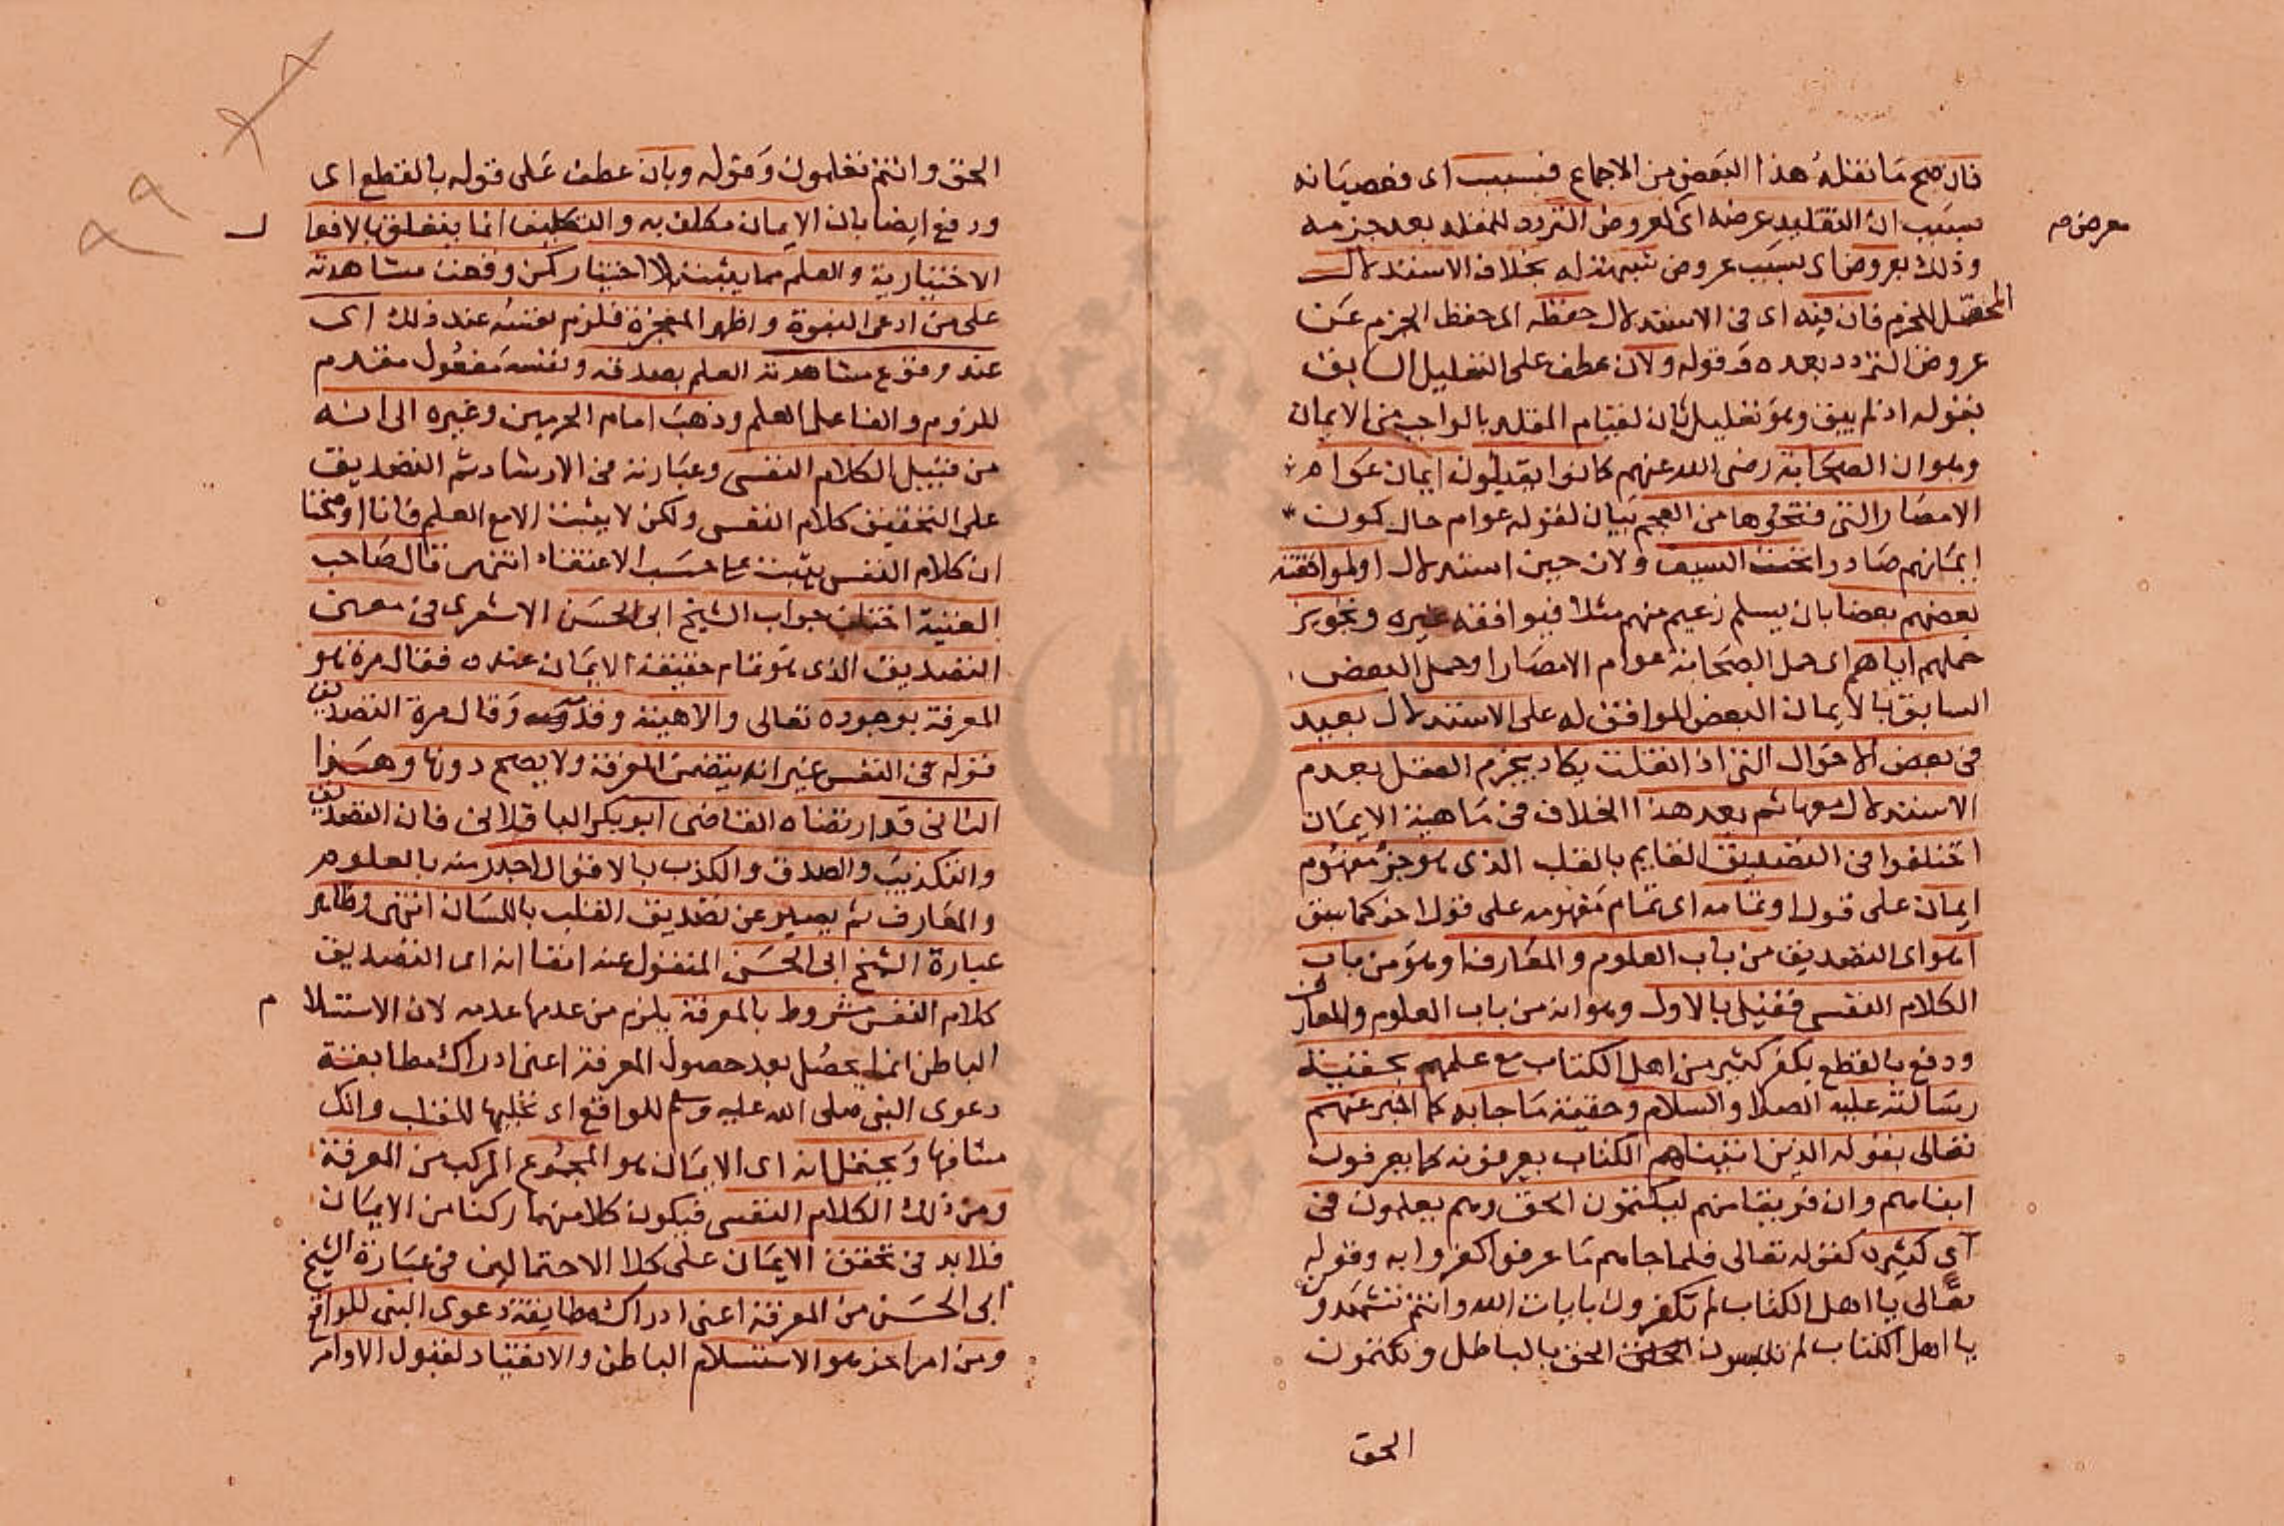 فان صح ما نقله هذا البعض من الاجماع فبسبب اى فعصيانه
بسبب ان التقليد عرضه اى لعروض التردد للمقلد بعد جزمه
معرض م
وذلك بعروض اى بسبب عروض شبهة له بخلاف الاستدلال
المحصل للجزم فان فيه اى فى الاستدلال حفظه اى حفظ الجزم عن
عروض التردد بعده وقوله ولان عطف على التعليل السابق
بقوله اذ لم يبق وهو تعليل ثان لقيام المقلد بالواجب من الايمان
وهو ان الصحابة رضى الله عنهم كانوا يقبلون ايمان عوام
الامصار التى فتحوها من العجم بيان لقوله عوام حال كون
ايمانهم صادرا تحت السيف ولان حين استدلال او لموافقة
بعضهم بعضا بان يسلم زعيم منهم مثلا فيوافقه غيره وتجويز
حملهم اياهم اى حمل الصحابة عوام الامصار او حمل البعض
السابق بالايمان البعض الموافق له على الاستدلال بعيد
فى بعض الاحوال التى اذا نقلت يكاد يجزم العقل بعدم
الاستدلال معها ثم بعد هذا الخلاف فى ماهية الايمان
اختلفوا فى التصديق القايم بالقلب الذى هو جزء مفهوم
ايمان على قول او تمامه اى تمام مفهومه على قول اخر كما سبق
اهو اى التصديق من باب العلوم والمعارف او هو من باب
الكلام النفسى فقيل بالاول وهو انه من باب العلوم والمعارف
ودفع بالقطع بكفر كثير من اهل الكتاب مع علمهم بحقيقة
رسالته عليه الصلا والسلام وحقية ما جا به كما اخبر عنهم
تعالى بقوله الذين اتيناهم الكتاب يعرفونه كما يعرفون
ابنا هم وان فريقا منهم ليكتمون الحق وهم يعلمون فى
آى كثيرة كقوله تعالى فلما جاهم ما عرفوا كفروا به وقوله
تعالى يا اهل الكتاب لم تكفرون بايات الله وانتم تشهدون
يا اهل الكتاب لم تلبسون الحق بالباطل وتكتمون
الحق
الحق وانتم تعلمون وقوله وبان عطف على قوله بالقطع اى
ودفع ايضا بان الايمان مكلف به والتكليف انما يتعلق بالافعا
ل
الاختيارية والعلم مما يثبت لا اختيار كمن وقعت مشاهدته
على من ادعى النبوة واظهر المعجزة فلزم نفسه عند ذلك اى
عند وقوع مشاهدته العلم بصدقه ونفسه مفعول مقدم
للزوم والفاعل العلم وذهب امام الحرمين وغيره الى انه
من قبيل الكلام النفسى وعبارته فى الارشاد ثم التصديق
على التحقيق كلام النفس ولكن لا يثبت الا مع العلم فانا اوضحنا
ان كلام النفس يثبت على حسب الاعتقاد انتهى قال صاحب
الغنية اختلف جواب الشيخ ابى الحسن الاشعرى فى معنى
التصديق الذى هو تمام حقيقة الايمان عنده فقال مرة هو
المعرفة بوجوده تعالى والاهيته وقدمه وقال مرة التصديق
قوله فى النفس غير انه يتضمن المعرفة ولا يصح دونها وهذا
الثانى قد ارتضاه القاضى ابو بكر الباقلانى فان التصديق
والتكذيب والصدق والكذب بالاقوال اجدر منه بالعلوم
والمعارف ثم يعبر عن تصديق القلب باللسان انتهى وظاهر
عبارة الشيخ ابى الحسن المنقول عنه انفا انه اى التصديق
كلام النفس مشروط بالمعرفة يلزم من عدمها عدمه لان الاستسلا
م
الباطن انما يحصل بعد حصول المعرفة اعنى ادراك مطابقة
دعوى النبى صلى الله عليه وسلم للواقع اى تجليها للقلب وانك
شافها ويحتمل انه اى الايمان هو المجموع المركب من المعرفة
ومن ذلك الكلام النفسى فيكون كلا منهما ركنا من الايمان
فلا بد فى تحقق الايمان على كلا الاحتمالين فى عبارة الشيخ
ابى الحسن من المعرفة اعنى ادراك مطابقة دعوى النبى للواقع
ومن امر اخر هو الاستسلام الباطن والانقياد لقبول الاوامر